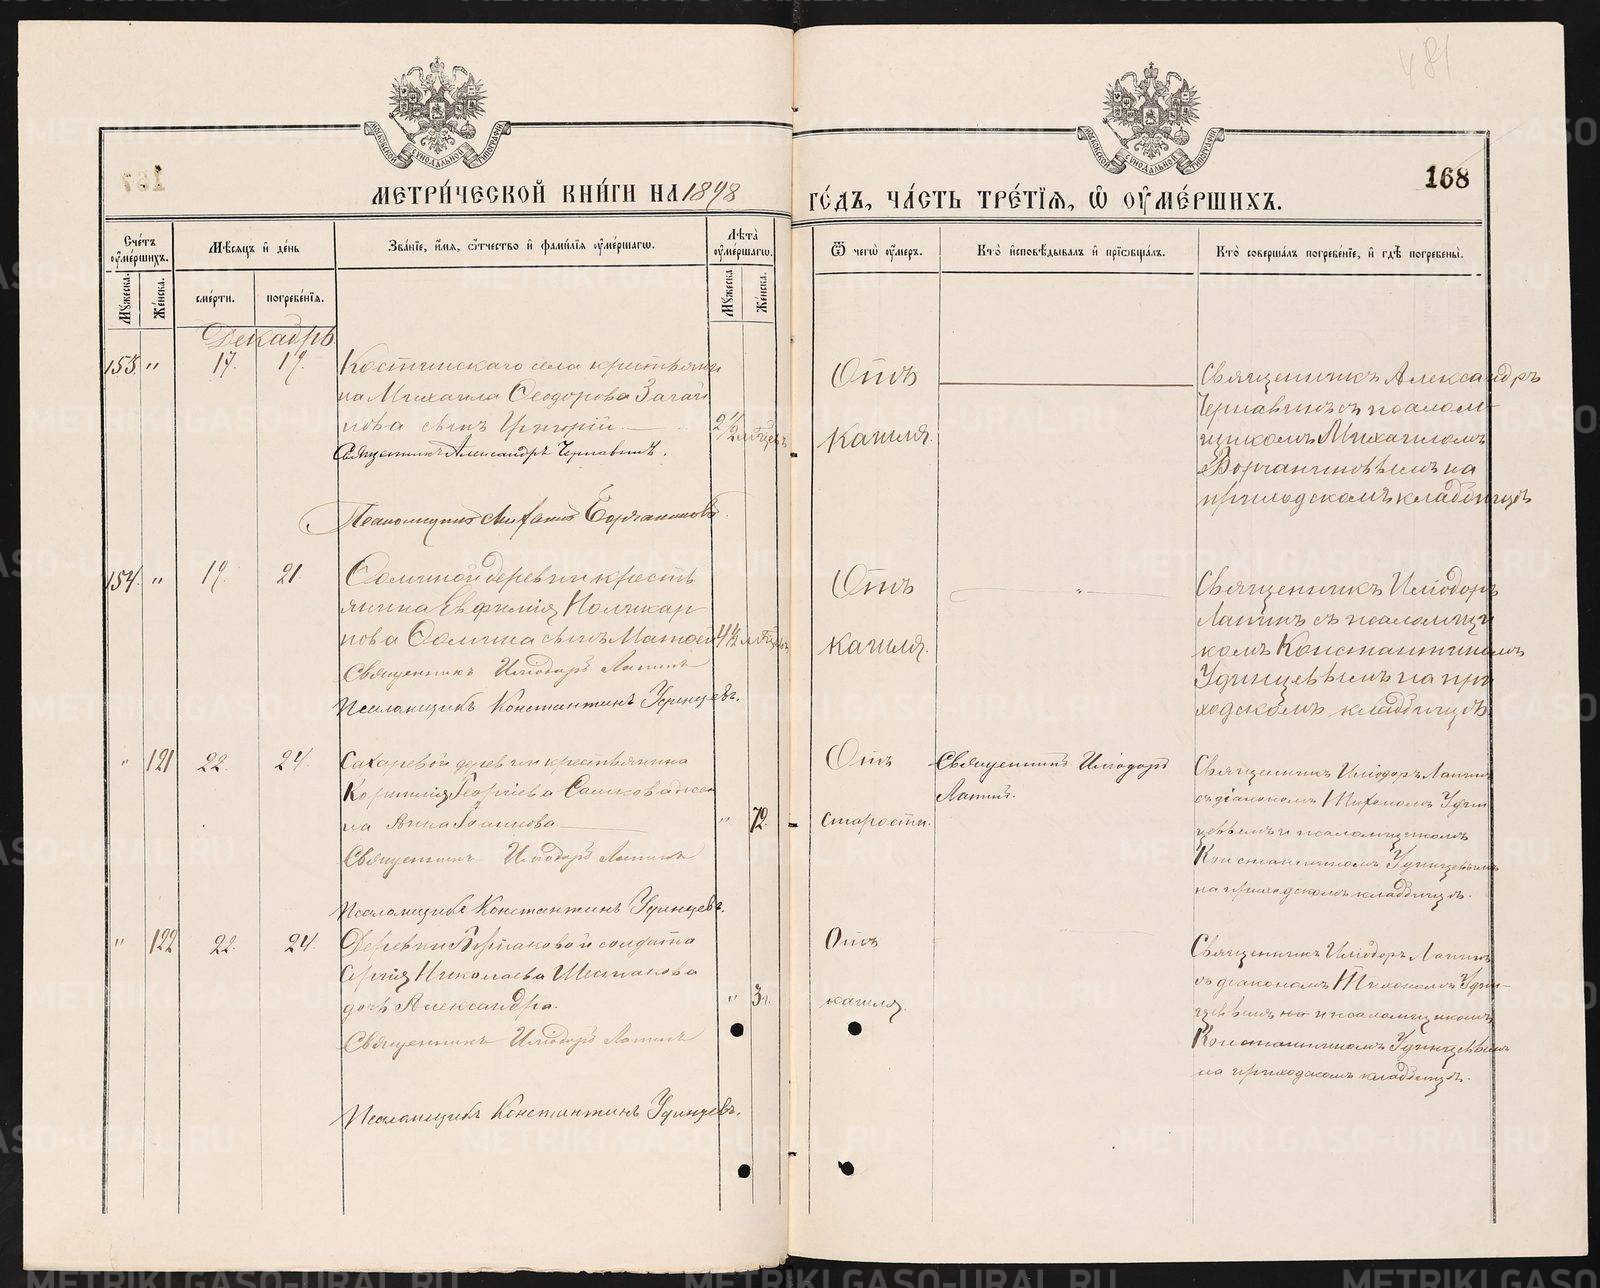 481
168
167
МОСКОВСКОЙ СѴНОДАЛЬНОЙ ТИПОГРАФІИ
МОСКОВСКОЙ СѴНОДАЛЬНОЙ ТИПОГРАФІИ
МЕТРИ́ЧЕСКОЙ КНИ́ГИ НА 1898 ГО́ДЪ, ЧА́СТЬ ТРЕ́ТІѦ, Ѡ҆ ОУ҆МЕ́РШИХЪ.
Сче́тъ оу҆ме́ршихъ.
Мꙋжеска.
Же́нска.
Мѣ́сѧцъ и҆ де́нь
сме́рти.
погребе́нїѧ.
Зва́нїе, и҆́мѧ, ѻ҆́тчество и҆ фами́лїѧ оу҆ме́ршагѡ.
Лѣ́та оу҆ме́ршагѡ.
Мꙋжеска
Же́нска.
Ѿ чегѡ̀ оу҆́меръ.
Кто̀ и҆сповѣ́дывалъ и҆ прїѡбща́лъ.
Кто̀ соверша́лъ погребе́нїе, и҆ гдѣ̀ погребены̀.
Декабрь
153. " 17. 19.
Костинскаго села крестьяни
на Михаила Ѳеодорова
сынъ Григорій
2 1/2 лѣтъ
Священникъ Александръ Чернавинъ.
Псаломщикъ Михаилъ
Отъ
кашля.
Священникъ Александръ
Чернавинъ съ псалом-
щикомъ Михаиломъ
на
приходскомъ кладбищѣ
154. " 19. 21
деревни кресть
янина Евфимія Поликар
пова сынъ
4 1/2
Священникъ Иліодоръ Лапинъ
Псаломщикъ Константинъ Удинцевъ.
Отъ
кашля.
"
Священникъ Иліодоръ
Лапинъ съ псаломщи
комъ Константиномъ
Удинцевымъ на при
ходскомъ кладбищѣ.
" 121 22. 24.
Сахаревой деревни крестьянина
Корнилія Георгіева жена
Анна
" 72.
Священникъ Иліодоръ Лапинъ
Псаломщикъ Константинъ Удинцевъ.
Отъ
старости.
Священникъ Иліодоръ
Лапинъ.
Священникъ Иліодоръ Лапинъ
съ діакономъ Тихономъ Удин
цевымъ и псаломщикомъ
Константиномъ Удинцевымъ
на приходскомъ кладбищѣ.
" 122 22. 24.
Деревни солдата
Сергія Николаева Шестакова
дочь Александра.
" 3 г.
Священникъ Иліодоръ Лапинъ
Псаломщикъ Константинъ Удинцевъ.
Отъ
кашля
Священникъ Иліодоръ Лапинъ
съ діакономъ Тихономъ Удин-
цевымъ и псаломщикомъ
Константиномъ Удинцевымъ
на приходскомъ кладбищѣ.
METRIKI.GASO-URAL.RU